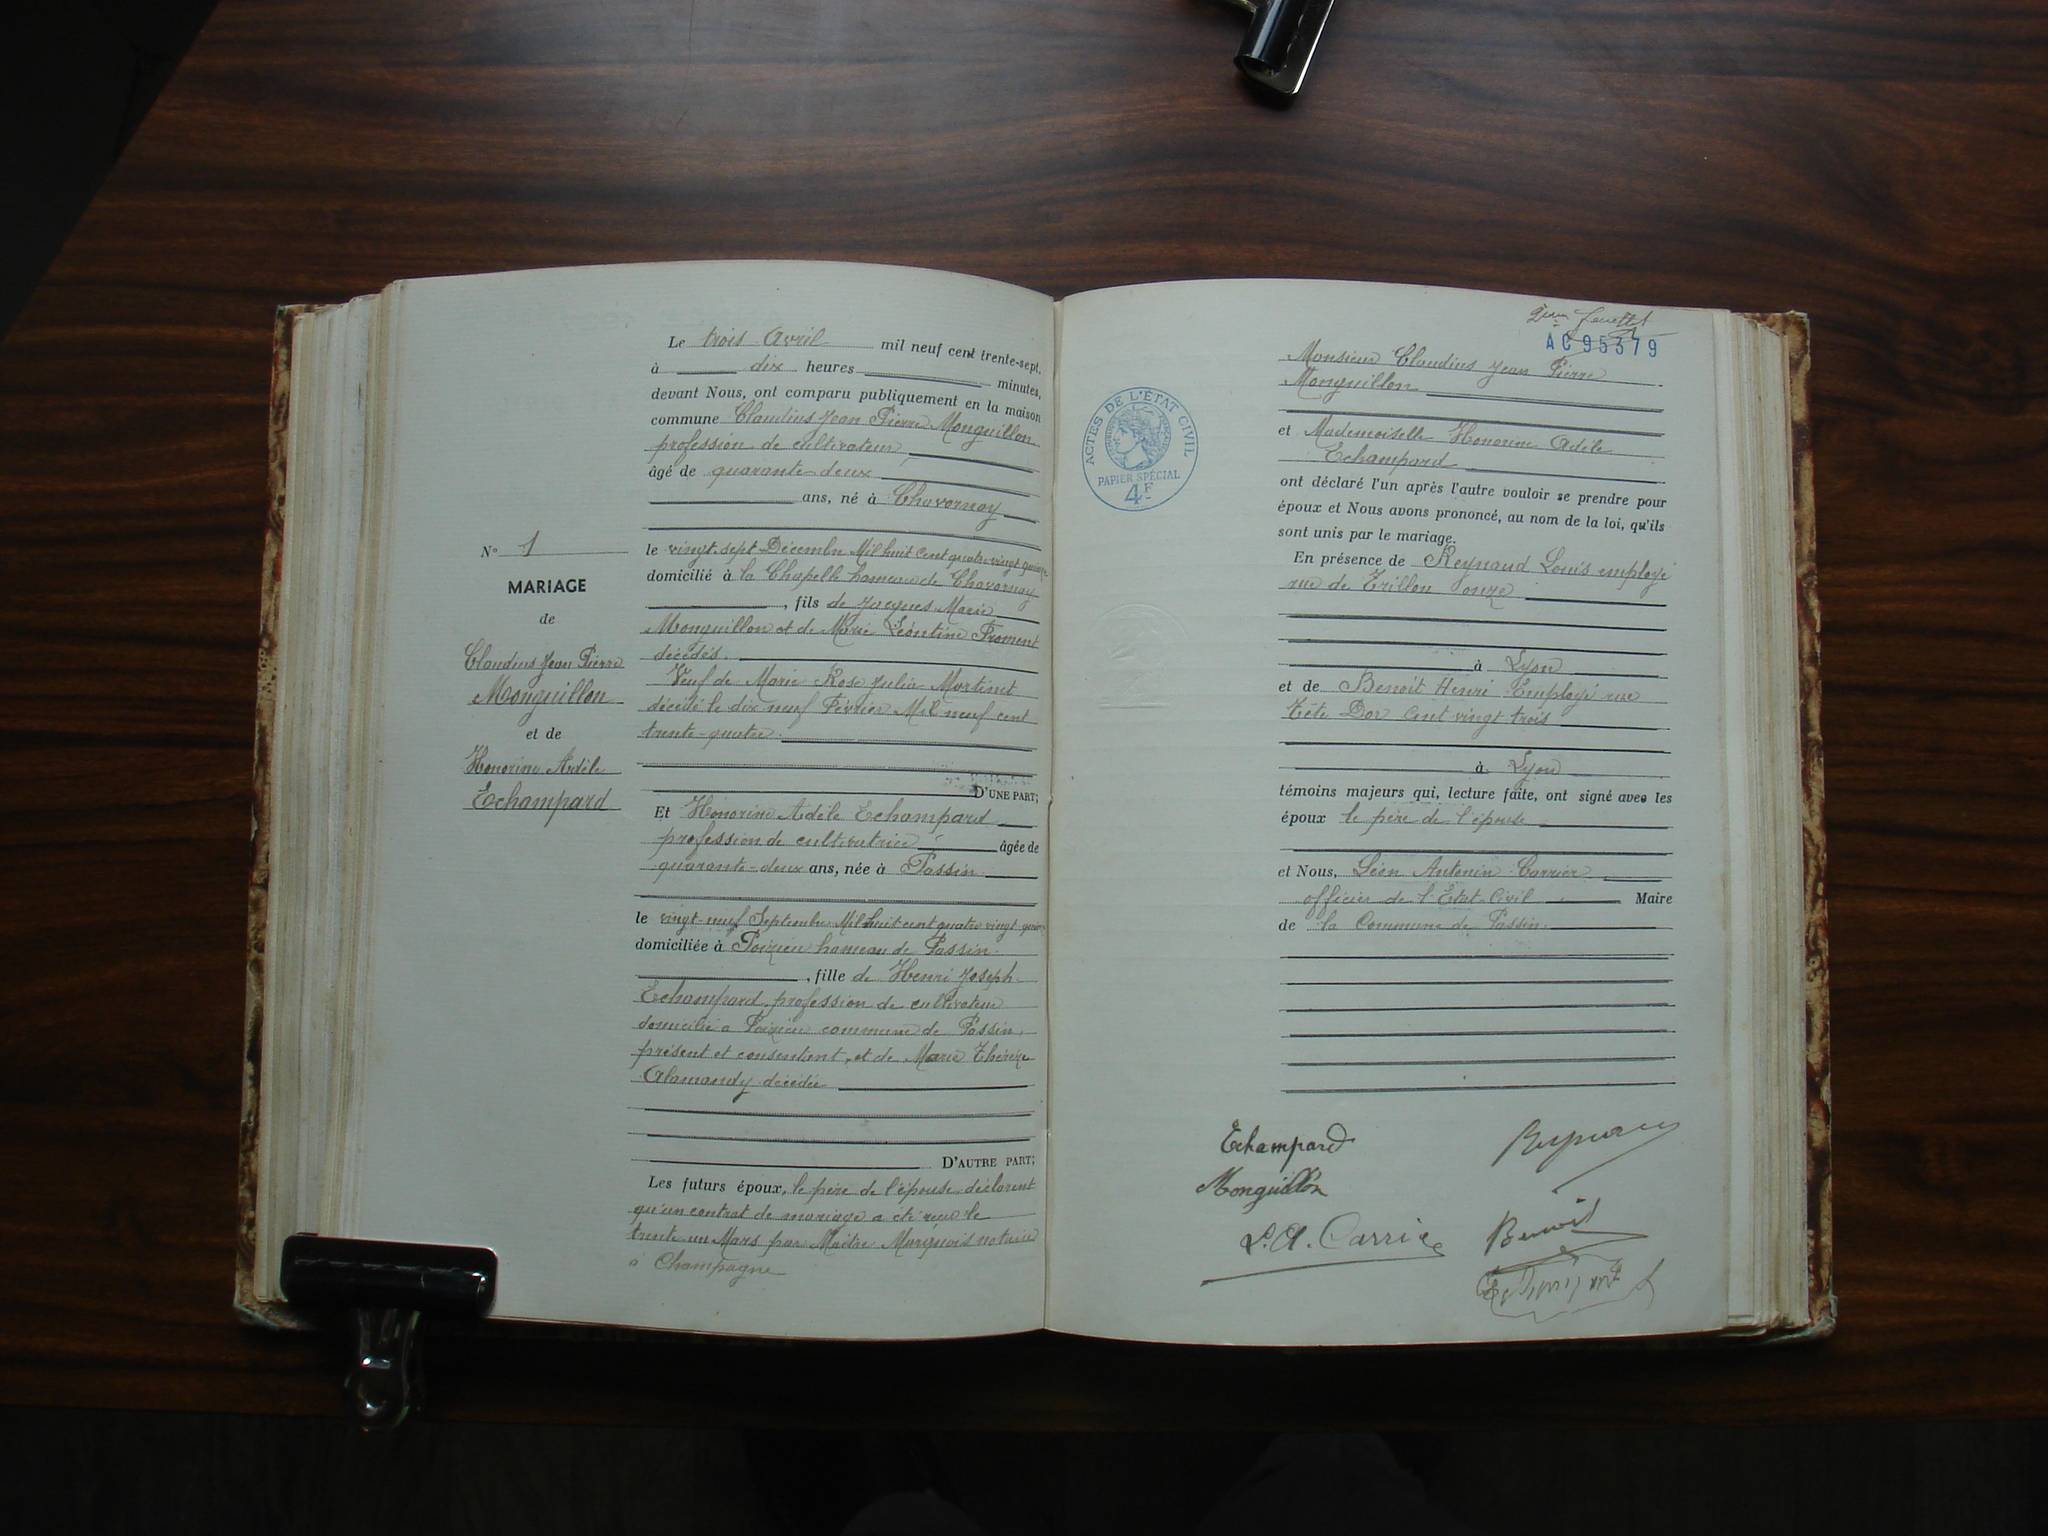 N° 1
MARIAGE
de
Claudius Jean Pierre
Monguillon
et de
Honorine Adèle
Echampard
Le trois Avril mil neuf cent trente-sept,
à dix heures minutes,
devant Nous, ont comparu publiquement en la maison
commune Claudius Jean Pierre Monguillon
profession de cultivateur
âgé de quarante deux
ans, né à Chavornay
le vingt-sept Décembre Mil huit cent quatre-vingt
domicilié à la Chapelle hameau de Chavornay
, fils de Jacques Marie
Monguillon et de Marie Léontine Froment
décédés.
Veuf de Marie Rose Julia Martinet
décédé le dix neuf Février Mil neuf cent
trente-quatre.
D'UNE PART;
Et Honorine Adèle Echampard
profession de cultivatrice âgée de
quarante-deux ans, née à Passin
le vingt-neuf Septembre Mil huit cent quatre vingt
domiciliée à Poizieu hameau de Passin
, fille de Henri Joseph
Echampard, profession de cultivateur
domicilié à Poizieu commune de Passin,
présent et consentent, et de Marie Thérèze
Alamandy décédée
D'AUTRE PART;
Les futurs époux, le père de l'épouse déclarent
qu'un contrat de mariage a été reçu le
trente un Mars par Maître Marquois notaire
à Champagne
2ème feuillet
AC 95379
ACTES DE L'ÉTAT CIVIL
PAPIER SPÉCIAL
4F
Monsieur Claudius Jean Pierre
Monguillon
et Mademoiselle Honorine Adèle
Echampard
ont déclaré l'un après l'autre vouloir se prendre pour
époux et Nous avons prononcé, au nom de la loi, qu'ils
sont unis par le mariage.
En présence de Reynaud Louis employé
rue de Trillon onze
à Lyon
et de Benoit Henri Employé rue
Tête Dor Cent vingt trois
à Lyon
témoins majeurs qui, lecture faite, ont signé avec les
époux le père de l'épouse
et Nous, Léon Antonin Carrier
officier de l'Etat-Civil Maire
de la Commune de Passin.
Echampard
Monguillon
L. A. Carrier
Benoit